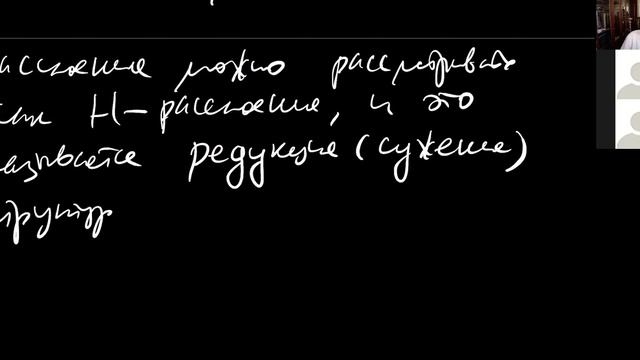 ассloение можно рассматривать
как H-расслоение, и это
азывается редукция (сужение)
труктур